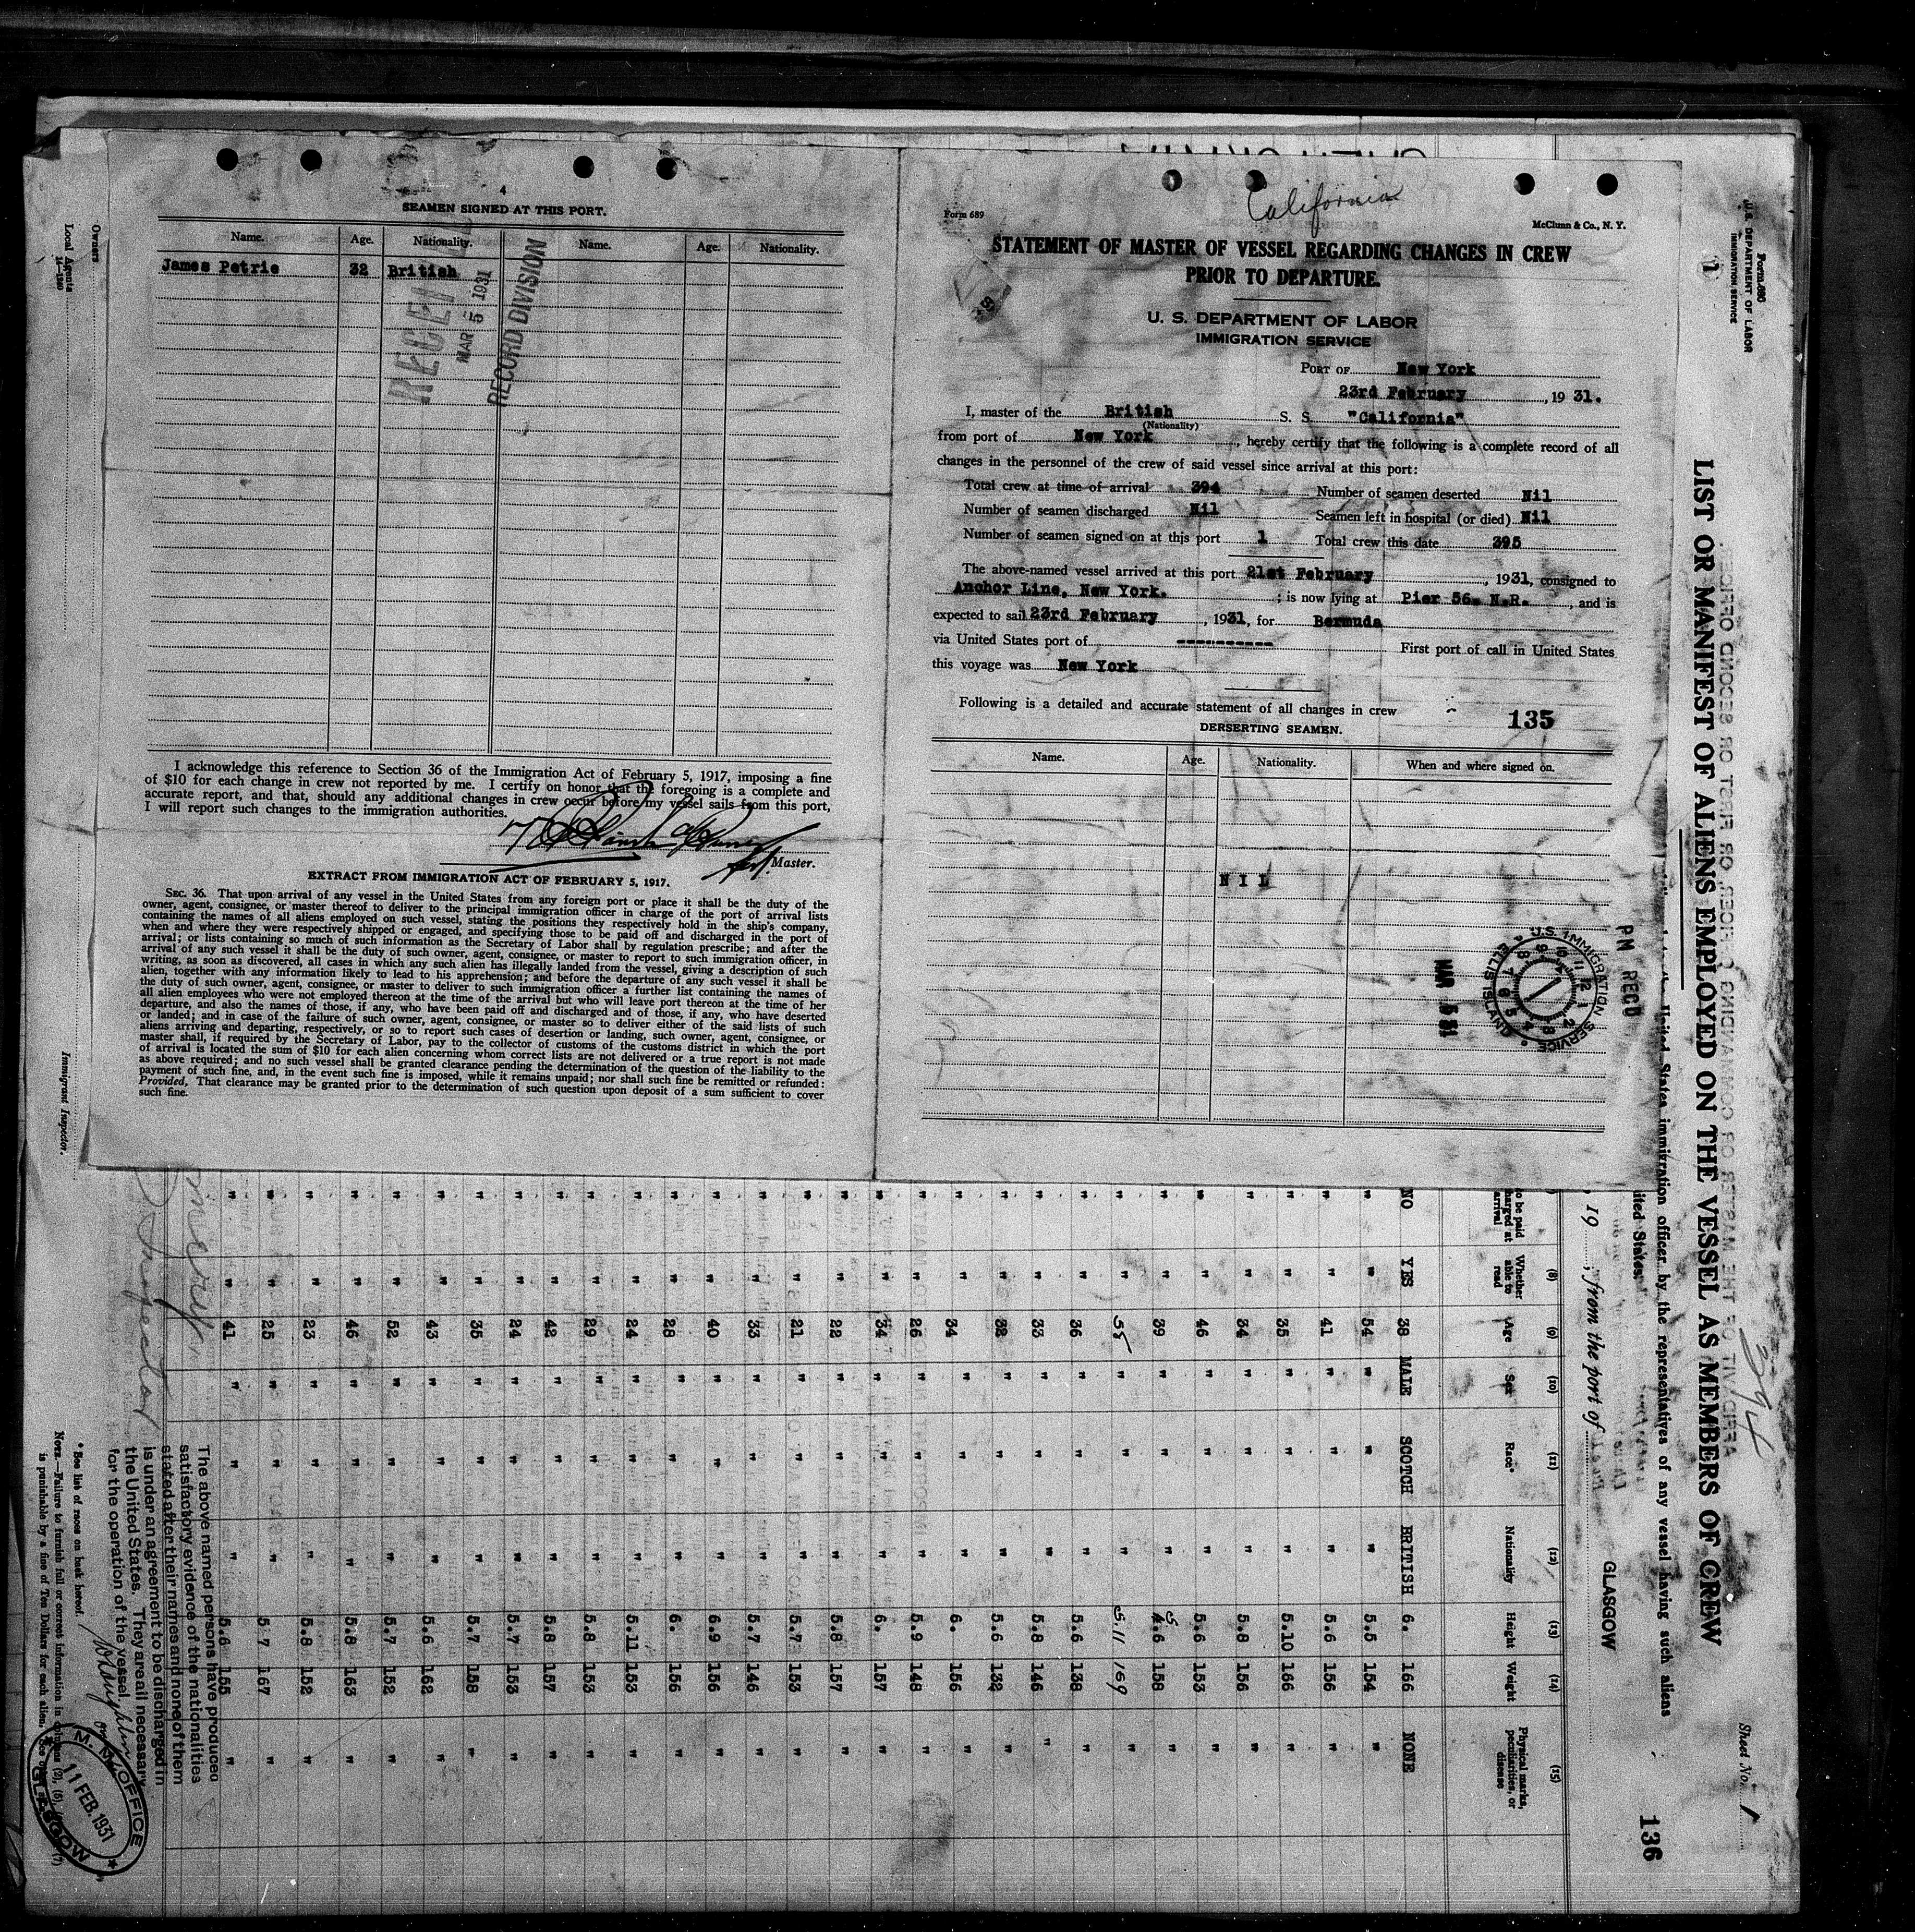 4
SEAMEN SIGNED AT THIS PORT.
Name. Age. Nationality. Name. Age. Nationality.
James Petrie 32 British
MAR 5 1931
RECORD DIVISION
I acknowledge this reference to Section 36 of the Immigration Act of February 5, 1917, imposing a fine
of $10 for each change in crew not reported by me. I certify on honor that the foregoing is a complete and
accurate report, and that, should any additional changes in crew occur before my vessel sails from this port,
I will report such changes to the immigration authorities.
Master.
EXTRACT FROM IMMIGRATION ACT OF FEBRUARY 5, 1917.
SEC. 36. That upon arrival of any vessel in the United States from any foreign port or place it shall be the duty of the
owner, agent, consignee, or master thereof to deliver to the principal immigration officer in charge of the port of arrival lists
containing the names of all aliens employed on such vessel, stating the positions they respectively hold in the ship's company,
when and where they were respectively shipped or engaged, and specifying those to be paid off and discharged in the port of
arrival; or lists containing so much of such information as the Secretary of Labor shall by regulation prescribe; and after the
arrival of any such vessel it shall be the duty of such owner, agent, consignee, or master to report to such immigration officer, in
writing, as soon as discovered, all cases in which any such alien has illegally landed from the vessel, giving a description of such
alien, together with any information likely to lead to his apprehension; and before the departure of any such vessel it shall be
the duty of such owner, agent, consignee, or master to deliver to such immigration officer a further list containing the names of
all alien employees who were not employed thereon at the time of the arrival but who will leave port thereon at the time of her
departure, and also the names of those, if any, who have been paid off and discharged and of those, if any, who have deserted
or landed; and in case of the failure of such owner, agent, consignee, or master so to deliver either of the said lists of such
aliens arriving and departing, respectively, or so to report such cases of desertion or landing, such owner, agent, consignee, or
master shall, if required by the Secretary of Labor, pay to the collector of customs of the customs district in which the port
of arrival is located the sum of $10 for each alien concerning whom correct lists are not delivered or a true report is not made
as above required; and no such vessel shall be granted clearance pending the determination of the question of the liability to the
payment of such fine, and, in the event such fine is imposed, while it remains unpaid; nor shall such fine be remitted or refunded:
Provided, That clearance may be granted prior to the determination of such question upon deposit of a sum sufficient to cover
such fine.
California
Form 689 McClunn & Co., N. Y.
STATEMENT OF MASTER OF VESSEL REGARDING CHANGES IN CREW
PRIOR TO DEPARTURE.
U. S. DEPARTMENT OF LABOR
IMMIGRATION SERVICE
PORT OF New York
23rd February, 19 31.
I, master of the British S. S. "California"
(Nationality)
from port of New York, hereby certify that the following is a complete record of all
changes in the personnel of the crew of said vessel since arrival at this port:
Total crew at time of arrival 394 Number of seamen deserted Nil
Number of seamen discharged Nil Seamen left in hospital (or died) Nil
Number of seamen signed on at this port 1 Total crew this date 395
The above-named vessel arrived at this port 21st February, 1931, consigned to
Anchor Line, New York.; is now lying at Pier 56. N.R., and is
expected to sail 23rd February, 1931, for Bermuda
via United States port of ---------- First port of call in United States
this voyage was New York
Following is a detailed and accurate statement of all changes in crew
135
DERSERTING SEAMEN.
Name. Age. Nationality. When and where signed on.
NIL
U.S. IMMIGRATION SERVICE
ELLIS ISLAND
PM RECD
Owners
Local Agents
14-1260
Immigrant Inspector.
Form 680
U. S. DEPARTMENT OF LABOR
IMMIGRATION SERVICE
1
394
Sheet No. 1
LIST OR MANIFEST OF ALIENS EMPLOYED ON THE VESSEL AS MEMBERS OF CREW
United States immigration officer by the representatives of any vessel having such aliens
136
, 19 , from the port of GLASGOW
(8) (9) (10) (11) (12) (13) (14) (15)
Whether able to read Age Sex Race* Nationality Height Weight Physical marks, peculiarities, or disease
NO YES 38 MALE SCOTCH BRITISH 6. 166 NONE
" " 54 " " " 5.5 154 "
" " 41 " " " 5.6 156 "
" " 35 " " " 5.10 166 "
" " 34 " " " 5.8 156 "
" " 46 " " " 5.6 153 "
" " 39 " " " 5.6 158 "
" " 55 " " " 5.11 169 "
" " 36 " " " 5.6 138 "
" " 33 " " " 5.8 146 "
" " 32 " " " 5.6 132 "
" " 34 " " " 6. 156 "
" " 26 " " " 5.9 148 "
" " 34 " " " 6. 157 "
" " 22 " " " 5.8 157 "
" " 21 " " " 5.7 153 "
" " 33 " " " 5.7 146 "
" " 40 " " " 6.9 156 "
" " 28 " " " 6. 156 "
" " 24 " " " 5.11 153 "
" " 29 " " " 5.8 153 "
" " 42 " " " 5.8 157 "
" " 24 " " " 5.7 153 "
" " 35 " " " 5.7 158 "
" " 43 " " " 5.6 162 "
" " 52 " " " 5.7 152 "
" " 46 " " " 5.8 163 "
" " 23 " " " 5.8 152 "
" " 25 " " " 5.7 167 "
" " 41 " " " 5.6 155 "
The above named persons have produced
satisfactory evidence of the nationalities
stated after their names and none of them
is under an agreement to be discharged in
the United States. They are all necessary
for the operation of the vessel.
* See list of races on back hereof.
NOTE.—Failure to furnish full or correct information in columns (2), (6),
is punishable by a fine of Ten Dollars for each alien.
M. M. OFFICE
11 FEB. 1931
GLASGOW